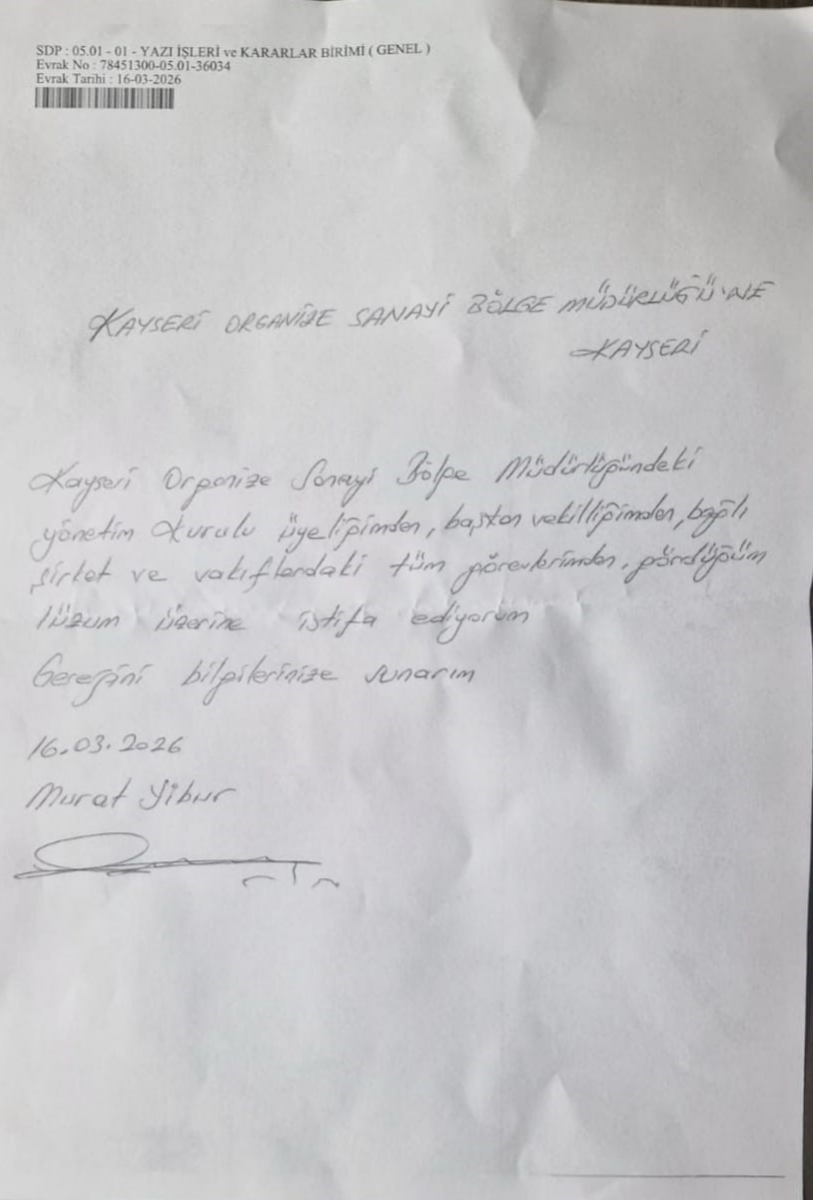 SDP : 05.01 - 01 - YAZI İŞLERİ ve KARARLAR BİRİMİ ( GENEL )
Evrak No : 78451300-05.01-36034
Evrak Tarihi : 16-03-2026
KAYSERİ ORGANİZE SANAYİ BÖLGE MÜDÜRLÜĞÜ'NE
KAYSERİ
Kayseri Organize Sanayi Bölge Müdürlüğündeki
yönetim kurulu üyeliğimden, başkan vekilliğimden, bağlı
şirket ve vakıflardaki tüm görevlerimden, gördüğüm
lüzum üzerine istifa ediyorum
Gereğini bilgilerinize sunarım
16.03.2026
Murat Yibur